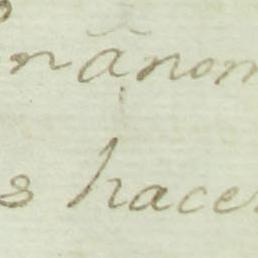 nãnom
s hacer